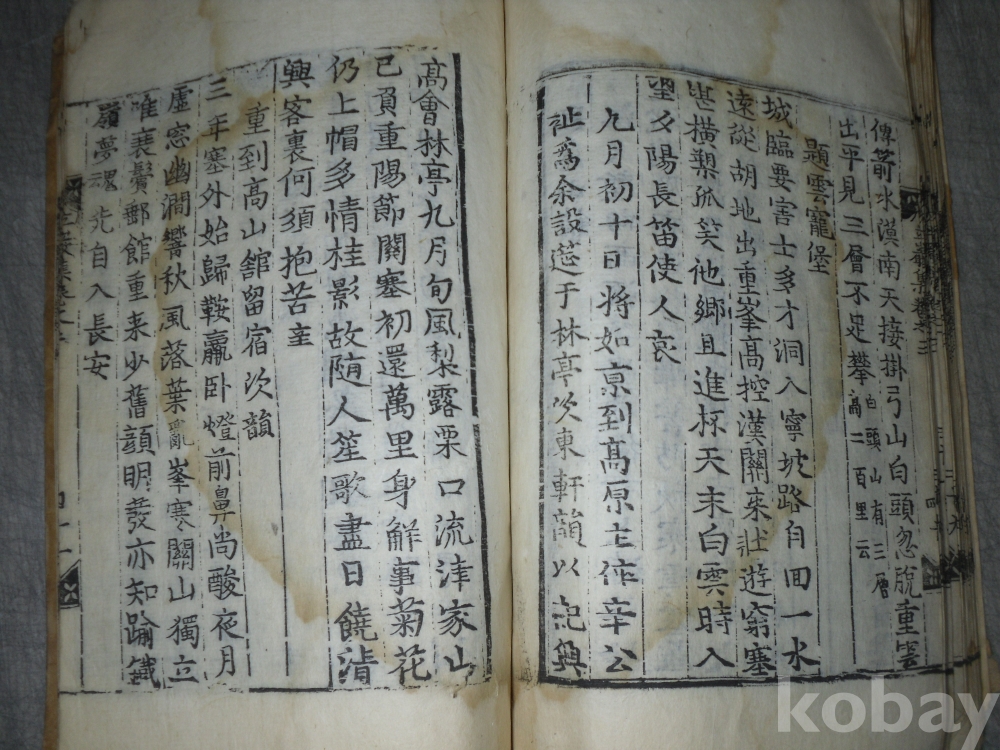 俾箭水滇南天接掛弓山白頭忽脫重雲
出平見三層不足攀白頭山有三層高二百里云
題雲寵堡
城臨要害士多才洞入寧坡路自回一水
遠從胡地出重峯高控漢關來壯遊窮塞
堪橫槊孤笑他鄉且進杯天末白雲時入
望夕陽長笛使人哀
九月初十日將如京到高原主倅辛公
祉爲余設筵于林亭次東軒韻以起興
高會林亭九月旬風梨露栗口流津家山
已負重陽節關塞初還萬里身解事菊花
仍上帽多情桂影故隨人笙歌盡日饒淸
興客裏何須抱苦辛
重到高山舘留宿次韻
三年塞外始歸鞍羸卧燈前鼻尚酸夜月
虛窓幽澗響秋風落葉亂峯寒關山獨立
唯衰鬢郵館重来少舊顔明發亦知踰鐵
嶺夢魂先自入長安
四十一
kobay